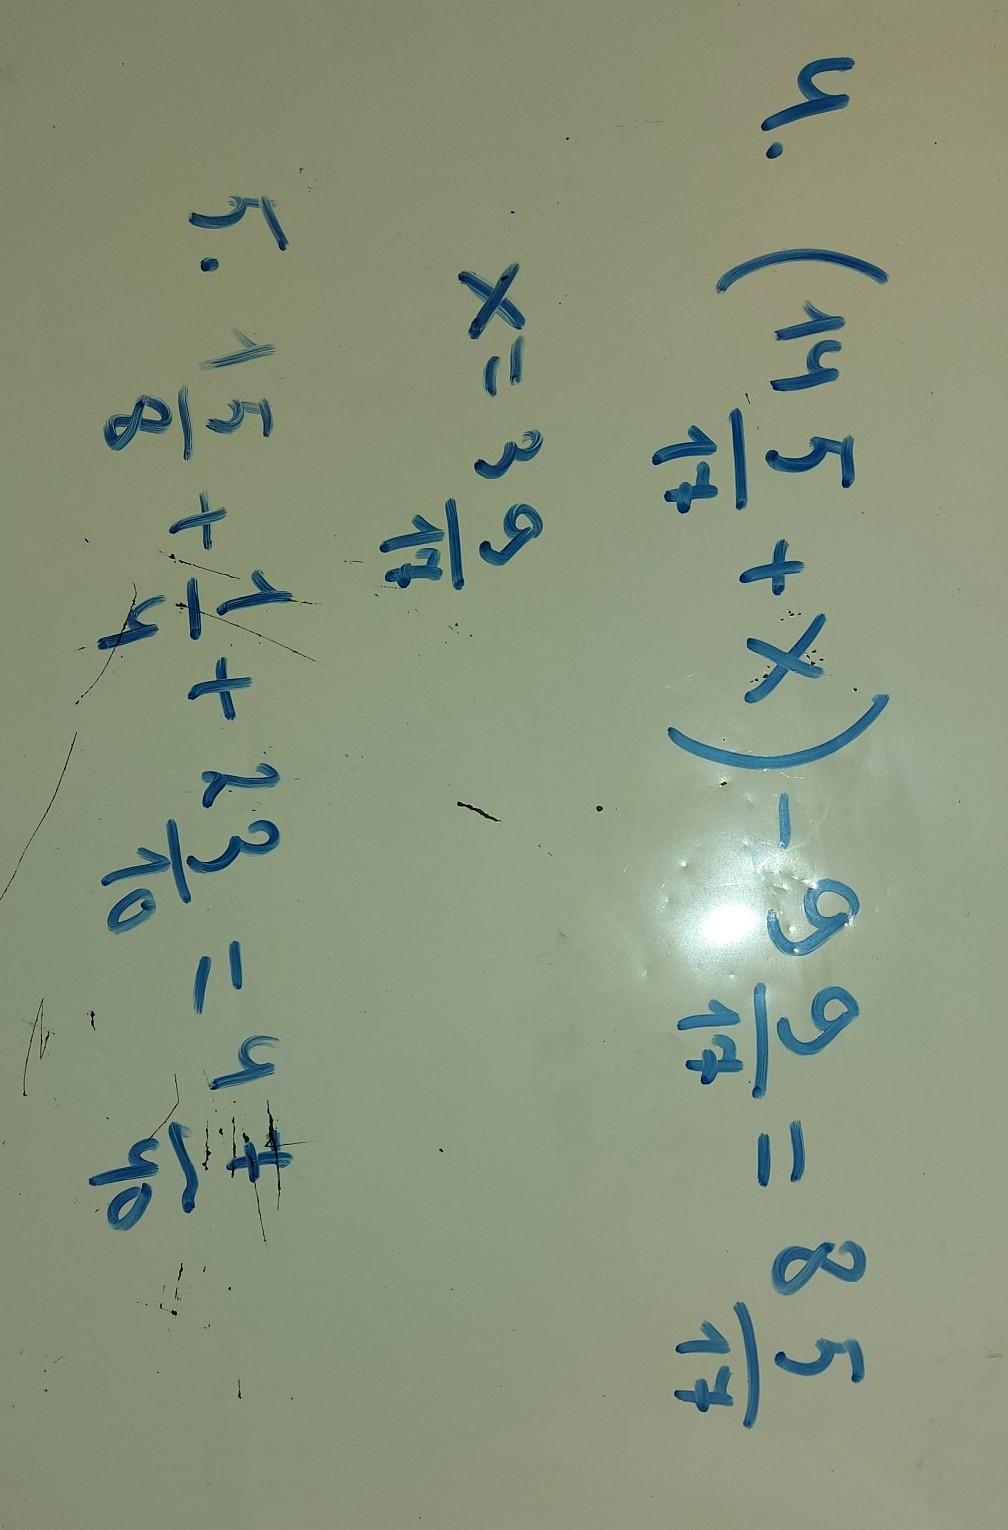 4. (14 5/17 + x) - 9 9/17 = 8 5/17
x = 3 9/17
5. 1 5/8 + 1/4 + 2 3/10 = 4 7/40